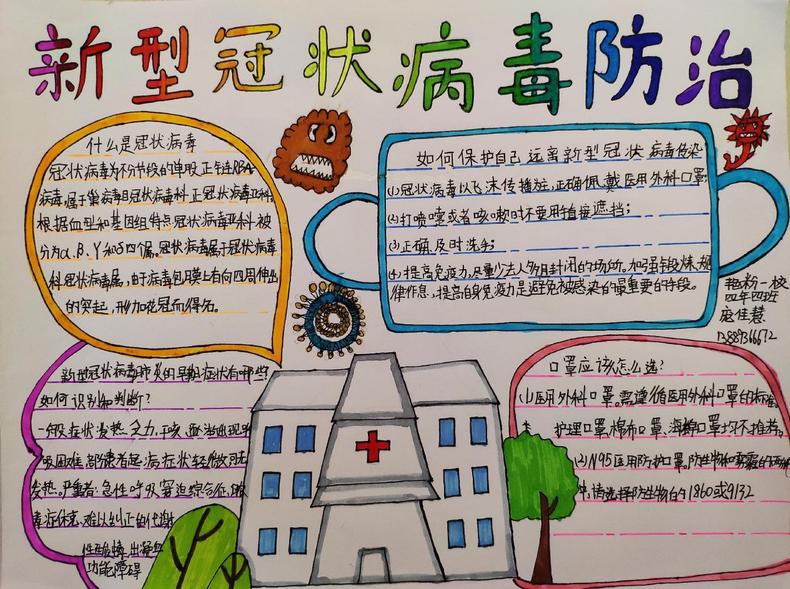 新型冠状病毒防治
什么是冠状病毒
冠状病毒为不分节段的单股正链RBA
病毒,属于巢病毒目冠状病毒科正冠状病毒亚科,
根据血型和基因组特点冠状病毒亚科被
分为α、β、γ和δ四个属。冠状病毒属于冠状病毒
科冠状病毒属,由于病毒包膜上有向四周伸出
的突起,形如花冠而得名。
如何保护自己远离新型冠状病毒传染
(1)冠状病毒以飞沫传播为主,正确佩戴医用外科口罩;
(2)打喷嚏或者咳嗽时不要用手直接遮挡;
(3)正确、及时洗手;
(4)提高免疫力,尽量少去人多且封闭的场所。加强锻炼、规
律作息,提高自身免疫力是避免被感染的最重要的手段。
一校
四年四班
佳慧
13887366672
新型冠状病毒肺炎的早期症状有哪些?
如何识别和判断?
一般症状:发热、乏力、干咳、逐渐出现呼
吸困难,部分患者起病症状轻微,可无
发热。严重者:急性呼吸窘迫综合征、脓
毒症休克、难以纠正的代谢
性酸中毒、出凝血
功能障碍
口罩应该怎么选?
(1)医用外科口罩。需遵循医用外科口罩的标准。
护理口罩,棉布口罩,海棉口罩均不推荐。
(2)N95医用防护口罩,防生物和雾霾的
请选择防生物的1860或9132